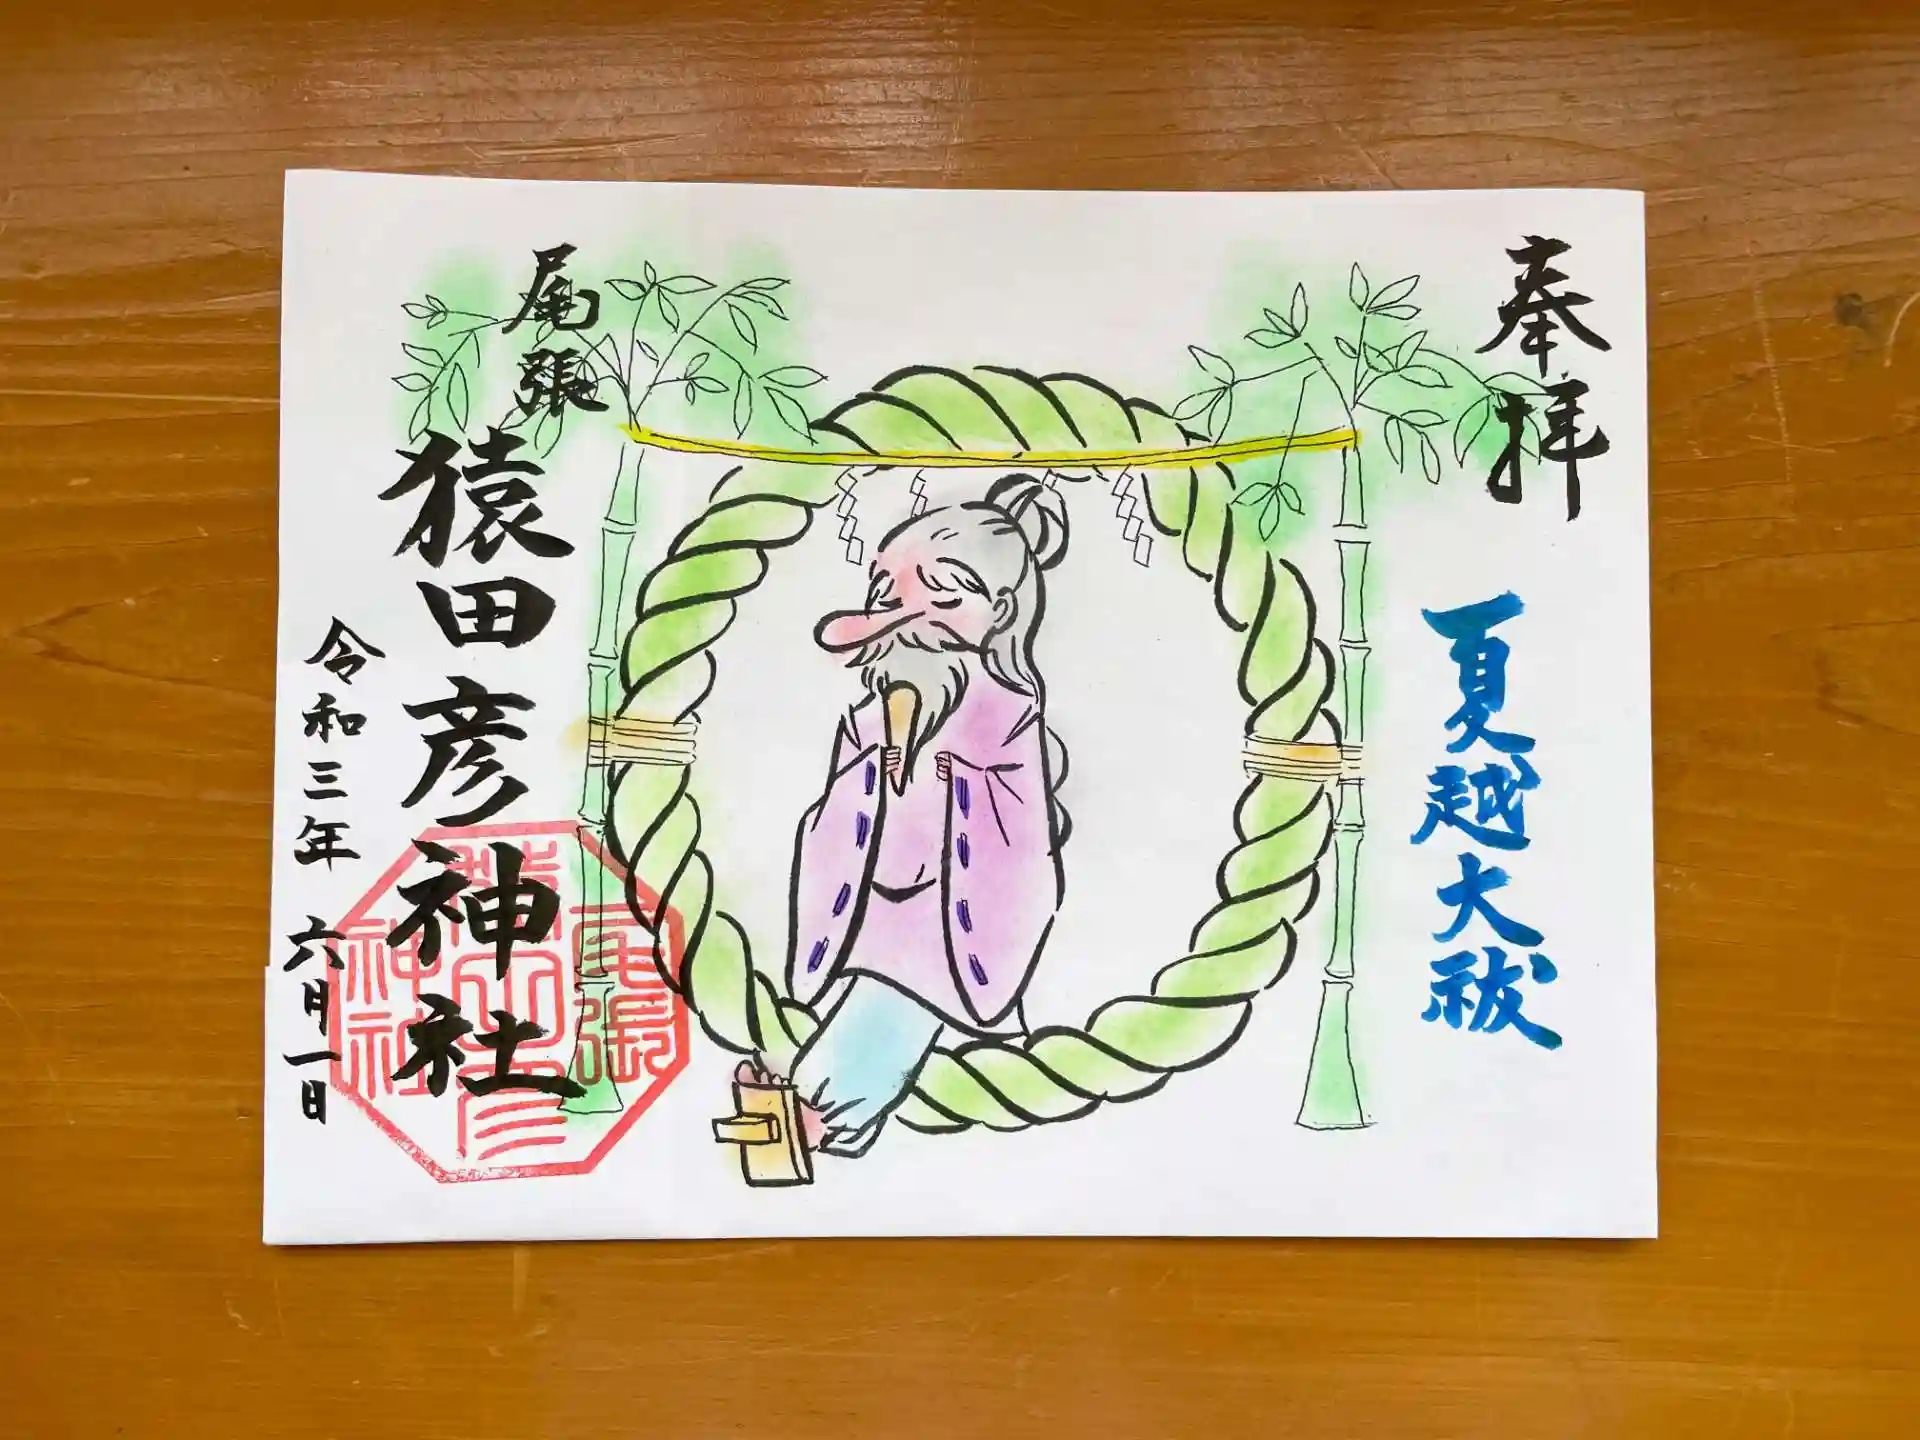 奉拝
夏越大祓
尾張
猿田彦神社
令和三年 六月一日
尾張
猿田彦
神社